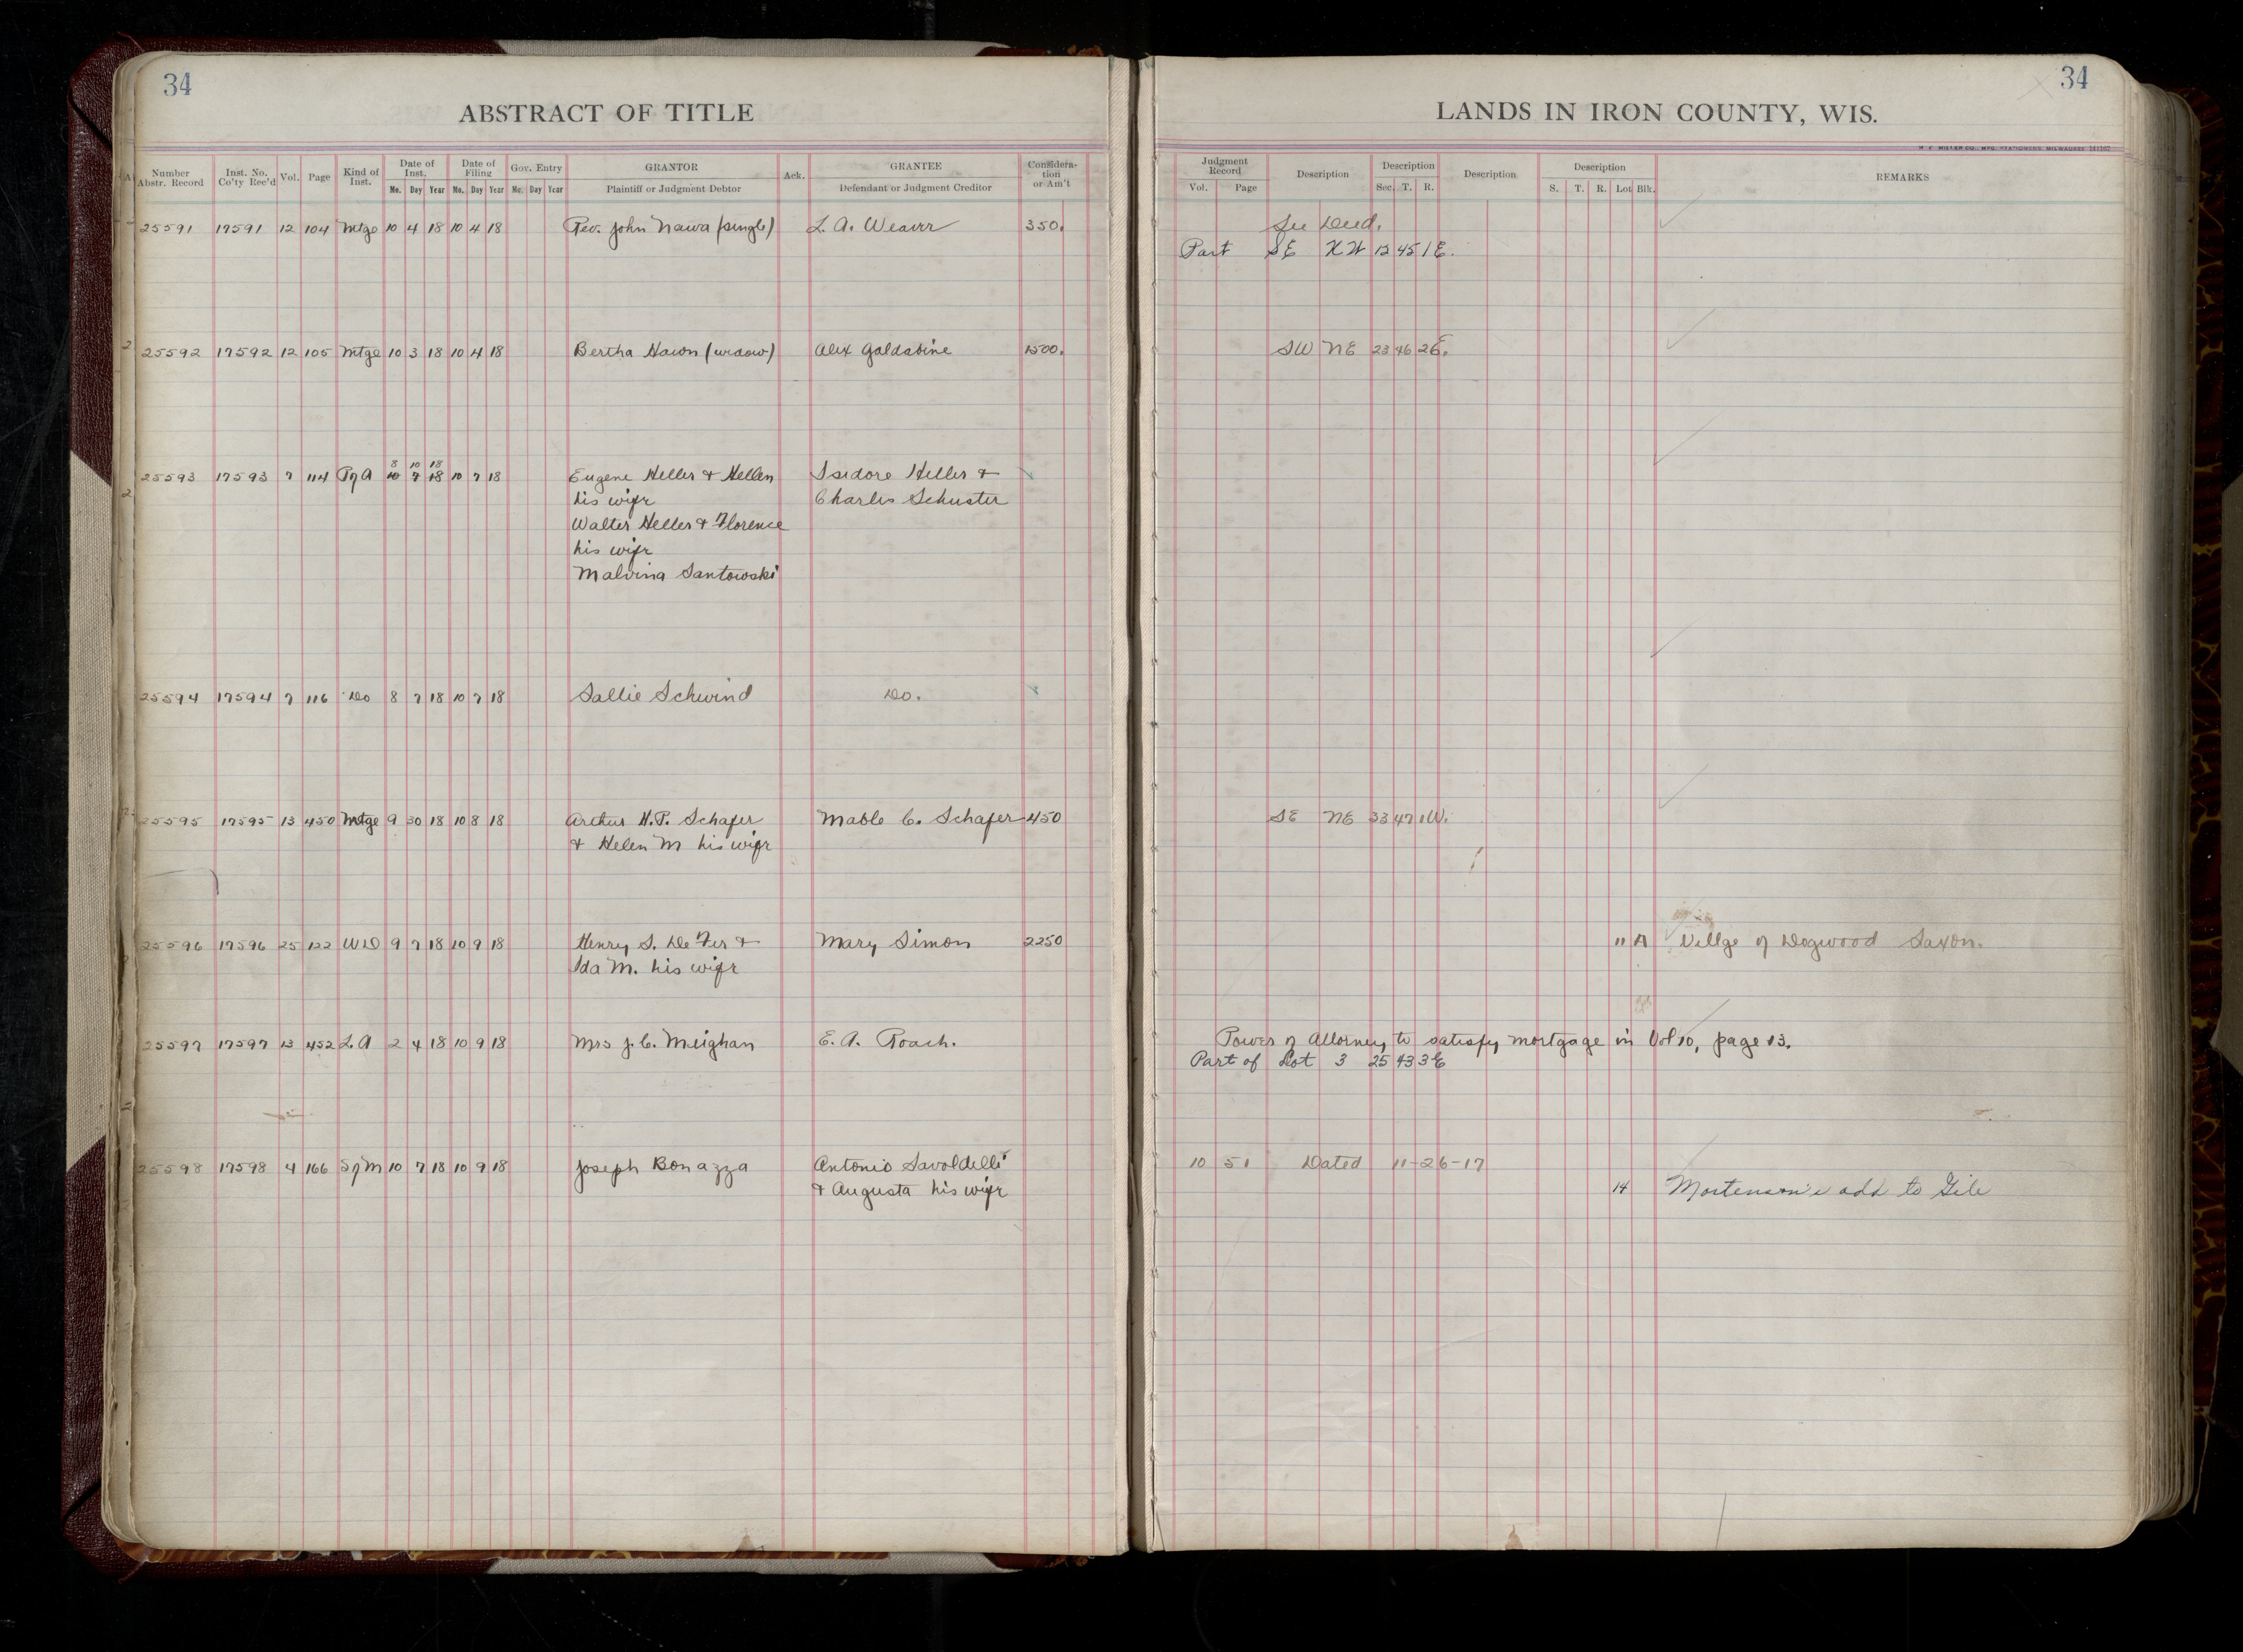 34
34
ABSTRACT OF TITLE
LANDS IN IRON COUNTY, WIS.
Number Abstr. Record Inst. No. Co'ty Rec'd Vol. Page Kind of Inst. Date of Inst. Mo. Day Year Date of Filing Mo. Day Year Gov. Entry Mo. Day Year GRANTOR Plaintiff or Judgment Debtor Ack. GRANTEE Defendant or Judgment Creditor Considera-tion or Am't
Judgment Record Vol. Page Description Description Sec. T. R. Description Description S. T. R. Lot Blk. REMARKS
25591 17591 12 104 Mtge 10 4 18 10 4 18 Rev. John Nawa (single) L. A. Weaver 350. See Deed.
Part SE NW 12 45 1E.
25592 17592 12 105 Mtge 10 3 18 10 4 18 Bertha Hawn (widow) Alex Goldabine 1500. SW NE 23 46 2E.
8 10 18
25593 17593 7 114 P of A 10 7 18 10 7 18 Eugene Heller & Hellen Isidore Heller &
his wife Charles Schuster
Walter Heller & Florence
his wife
Malvina Santowski
25594 17594 7 116 Do 8 7 18 10 7 18 Sallie Schwind Do.
25595 17595 13 450 Mtge 9 30 18 10 8 18 Arthur H.P. Schafer Mable C. Schafer 450 SE NE 33 47 1W.
& Helen M his wife
25596 17596 25 122 WD 9 7 18 10 9 18 Henry S. DeFer & Mary Simon 2250 11 A Villge of Dogwood Saxon.
Ida M. his wife
25597 17597 13 452 L.A 2 4 18 10 9 18 Mrs J. C. Meighan E. A. Roach. Power of Attorney to satisfy mortgage in Vol 10, page 13.
Part of Lot 3 25 43 3E
25598 17598 4 166 S of M 10 7 18 10 9 18 Joseph Bonazza Antonio Savoldelli 10 51 Dated 11-26-17
& Augusta his wife 14 Mortenson's add to Gile